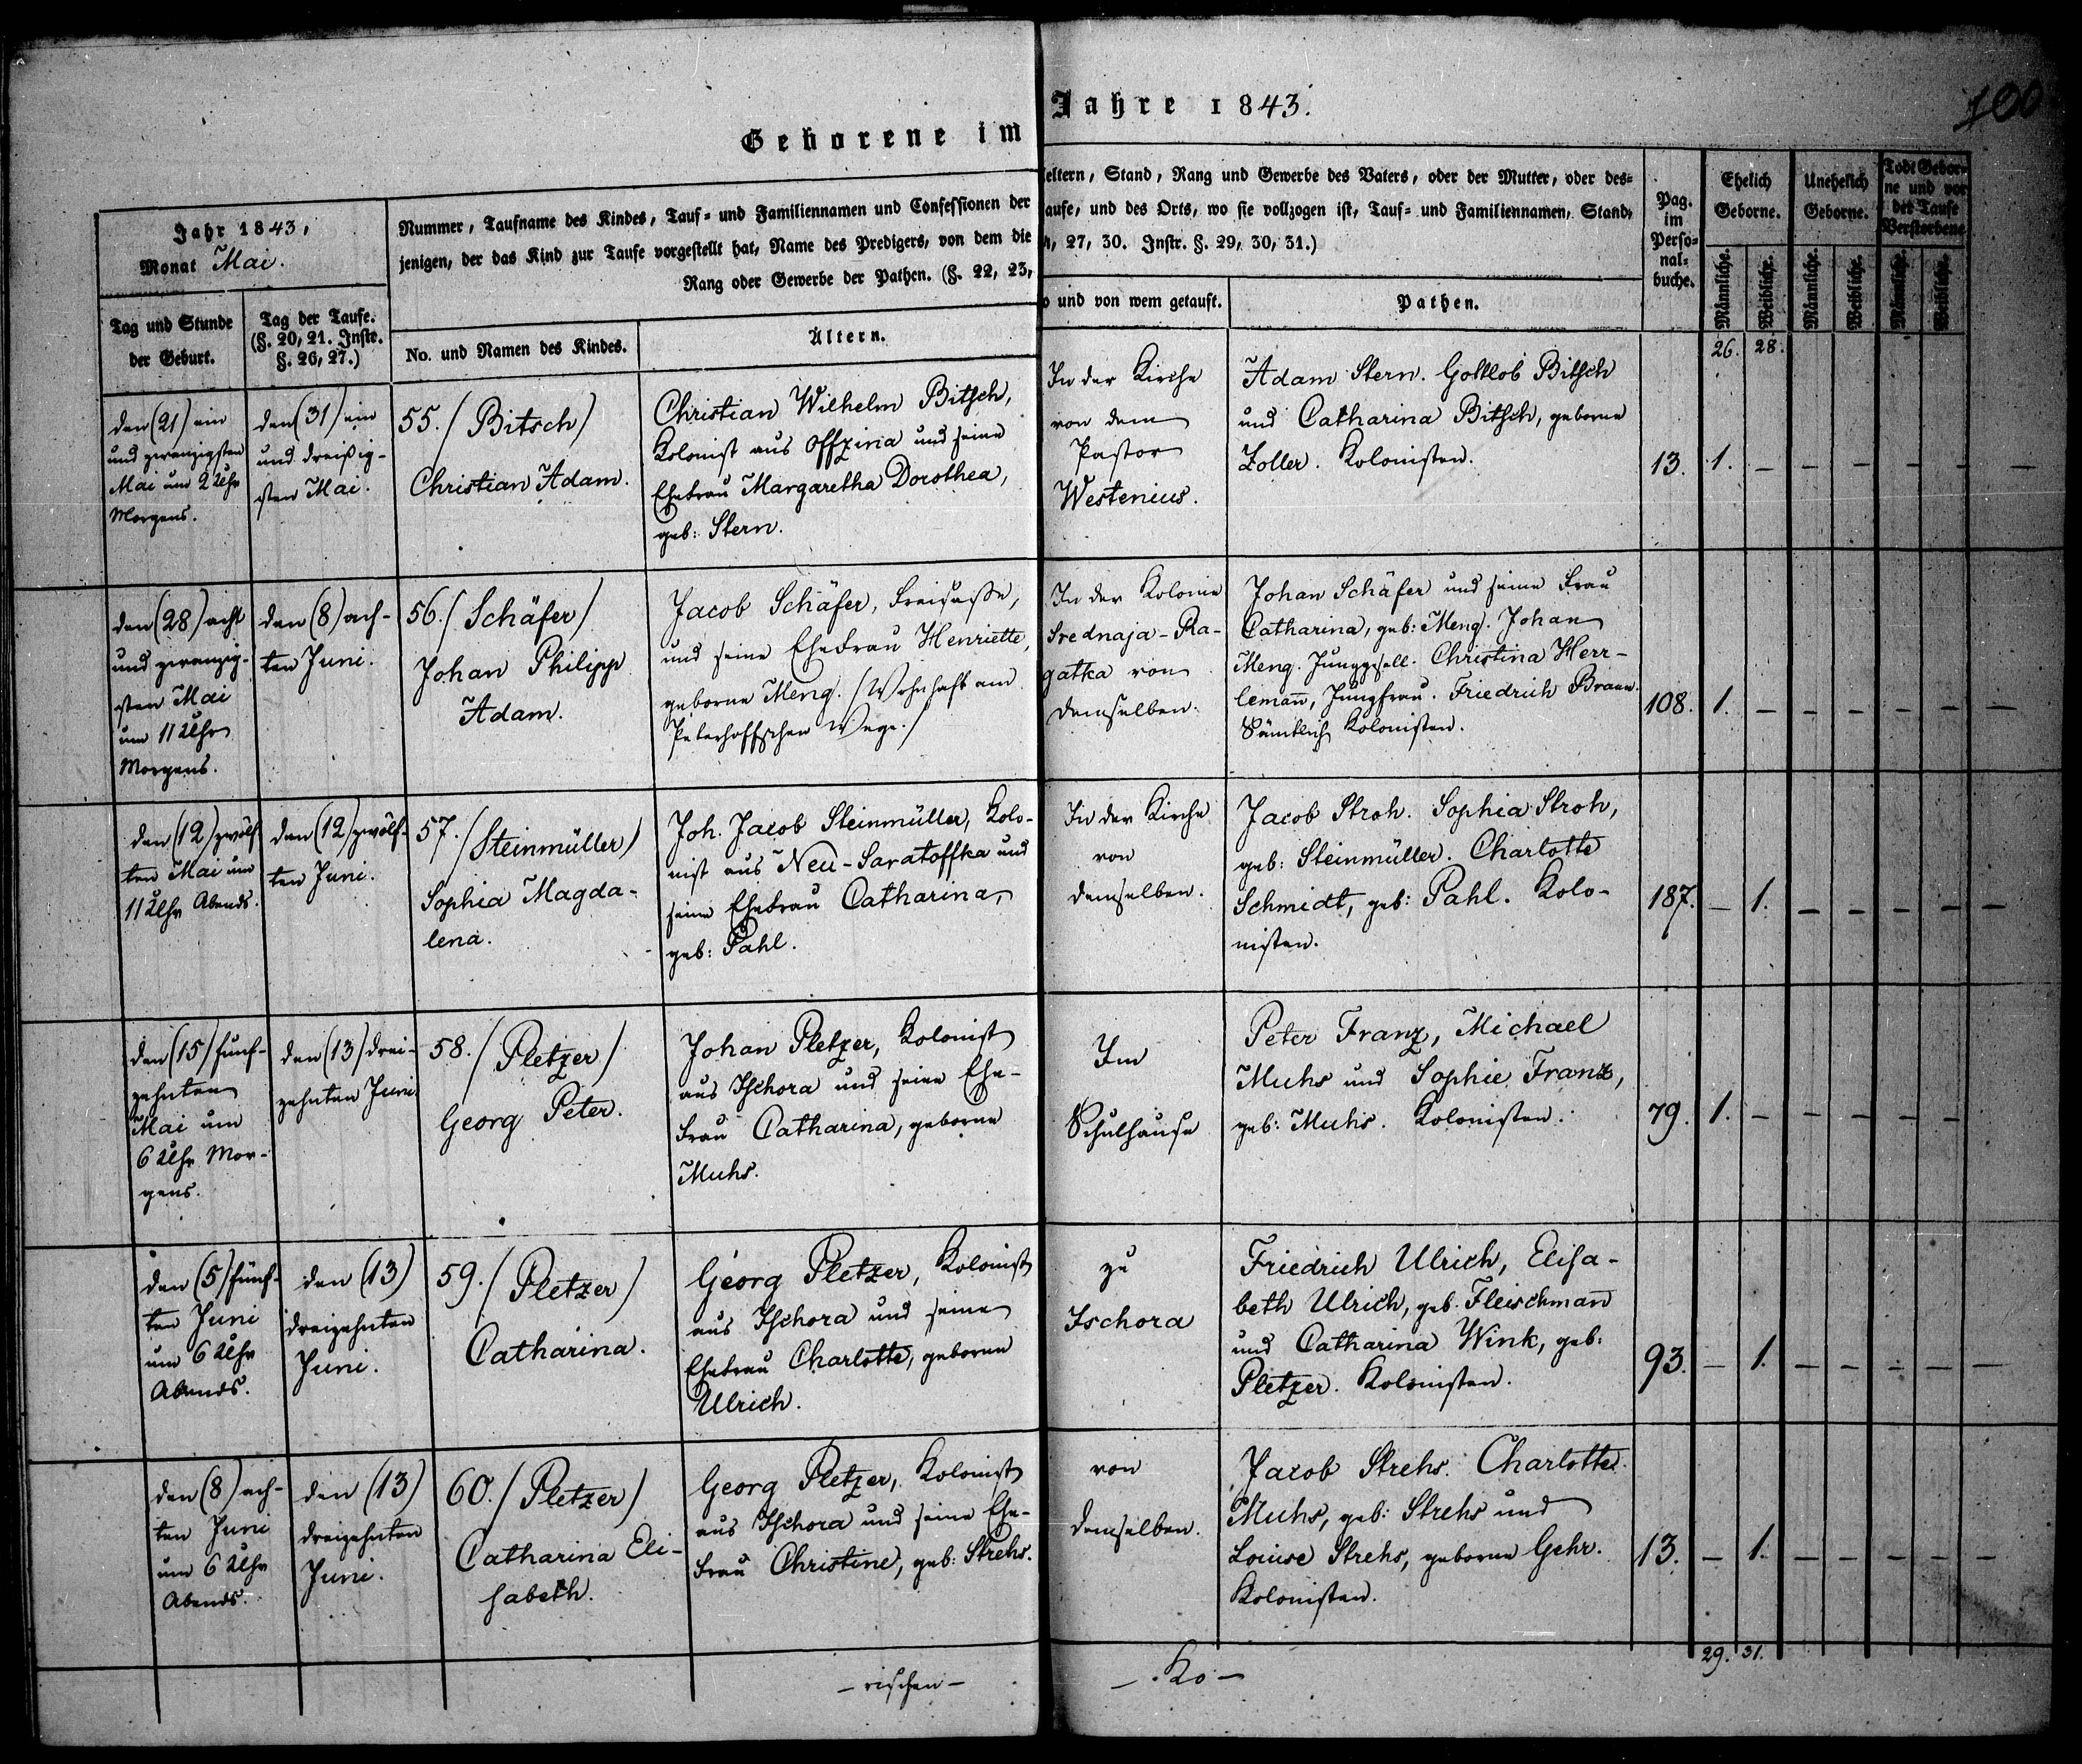 100
Geborene im Jahre 1843.
Jahr 1843,
Monat Mai.
Tag und Stunde
der Geburt.
Tag der Taufe.
(§. 20, 21. Instr.
§. 26, 27.)
Nummer, Taufname des Kindes, Tauf- und Familiennamen und Confessionen der
jenigen, der das Kind zur Taufe vorgestellt hat, Name des Predigers, von dem die
Rang oder Gewerbe der Pathen. (§. 22, 23,
No. und Namen des Kindes.
Ältern.
eltern, Stand, Rang und Gewerbe des Vaters, oder der Mutter, oder des-
aufe, und des Orts, wo sie vollzogen ist, Tauf- und Familiennamen, Stand,
27, 30. Instr. §. 29, 30, 31.)
o und von wem getauft.
Pathen.
Pag.
im
Perso-
nal-
buche.
Ehelich
Geborne.
Unehelich
Geborne.
Todt Gebor-
ne und vor
der Taufe
Verstorbene
Männliche.
Weibliche.
Männliche.
Weibliche.
Männliche.
Weibliche.
26. 28.
den (21) ein
und zwanzigsten
Mai um 2 Uhr
Morgens.
den (31) ein
und dreißig-
sten Mai.
55. / Bitsch /
Christian Adam.
Christian Wilhelm Bitsch,
Kolonist aus Offzina und seine
Ehefrau Margaretha Dorothea,
geb: Stern.
In der Kirche
von dem
Pastor
Westenius.
Adam Stern. Gottlob Bitsch
und Catharina Bitsch, geborne
Zoller. Kolonisten.
13. 1. – – – – –
den (28) acht
und zwanzig-
sten Mai
um 11 Uhr
Morgens.
den (8) ach-
ten Juni.
56. / Schäfer /
Johan Philipp
Adam.
Jacob Schäfer, Freisasse,
und seine Ehefrau Henriette,
geborne Meng. / Wohnhaft am
Peterhoffschen Wege. /
In der Kolonie
Srednaja-Ra-
gatka von
demselben.
Johan Schäfer und seine Frau
Catharina, geb: Meng. Johan
Meng. Junggesell. Christina Herr-
lemañ, Jungfrau. Friedrich Braun.
Sämtlich Kolonisten.
108. 1. – – – – –
den (12) zwölf-
ten Mai um
11 Uhr Abends.
den (12) zwölf-
ten Juni.
57. / Steinmüller /
Sophia Magda-
lena.
Joh. Jacob Steinmüller, Kolo-
nist aus Neu-Saratoffka und
seine Ehefrau Catharina,
geb: Pahl.
In der Kirche
von
demselben.
Jacob Stroh. Sophia Stroh,
geb: Steinmüller. Charlotte
Schmidt, geb: Pahl. Kolo-
nisten.
187. – 1. – – – –
den (15) fünf-
zehnten
Mai um
6 Uhr Mor-
gens.
den (13) drei-
zehnten Juni
58. / Pletzer /
Georg Peter.
Johan Pletzer, Kolonist
aus Ischora und seine Ehe-
frau Catharina, geborne
Muhs.
Im
Schulhause
Peter Franz, Michael
Muhs und Sophie Franz,
geb: Muhs. Kolonisten.
79. 1. – – – – –
den (5) fünf-
ten Juni
um 6 Uhr
Abends.
den (13)
dreizehnten
Juni.
59. / Pletzer /
Catharina.
Georg Pletzer, Kolonist
aus Ischora und seine
Ehefrau Charlotte, geborne
Ulrich.
zu
Ischora
Friedrich Ulrich, Elisa-
beth Ulrich, geb. Fleischmañ
und Catharina Wink, geb:
Pletzer. Kolonisten.
93. – 1. – – – –
den (8) ach-
ten Juni
um 6 Uhr
Abends.
den (13)
dreizehnten
Juni.
60. / Pletzer /
Catharina Eli-
sabeth.
Georg Pletzer, Kolonist
aus Ischora und seine Ehe-
frau Christine, geb: Strehs.
von
demselben.
Jacob Strehs. Charlotte
Muhs, geb: Strehs und
Louise Strehs, geborne Gehr.
Kolonisten.
13. – 1. – – – –
29. 31.
– rischen –
– Ko –